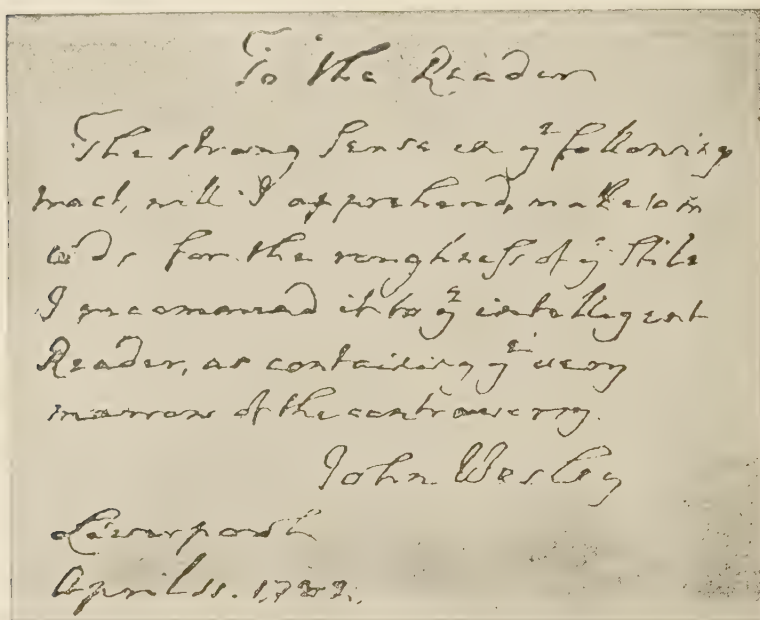 To the Reader
The strong Sense in yᵉ following
tract, will I apprehend, make am
ends for the roughness of yᵉ Stile
I recomend it to yᵉ intelligent
Reader, as containing yᵉ very
marrow of the controversy.
John Wesley
Liverpool
April 11.